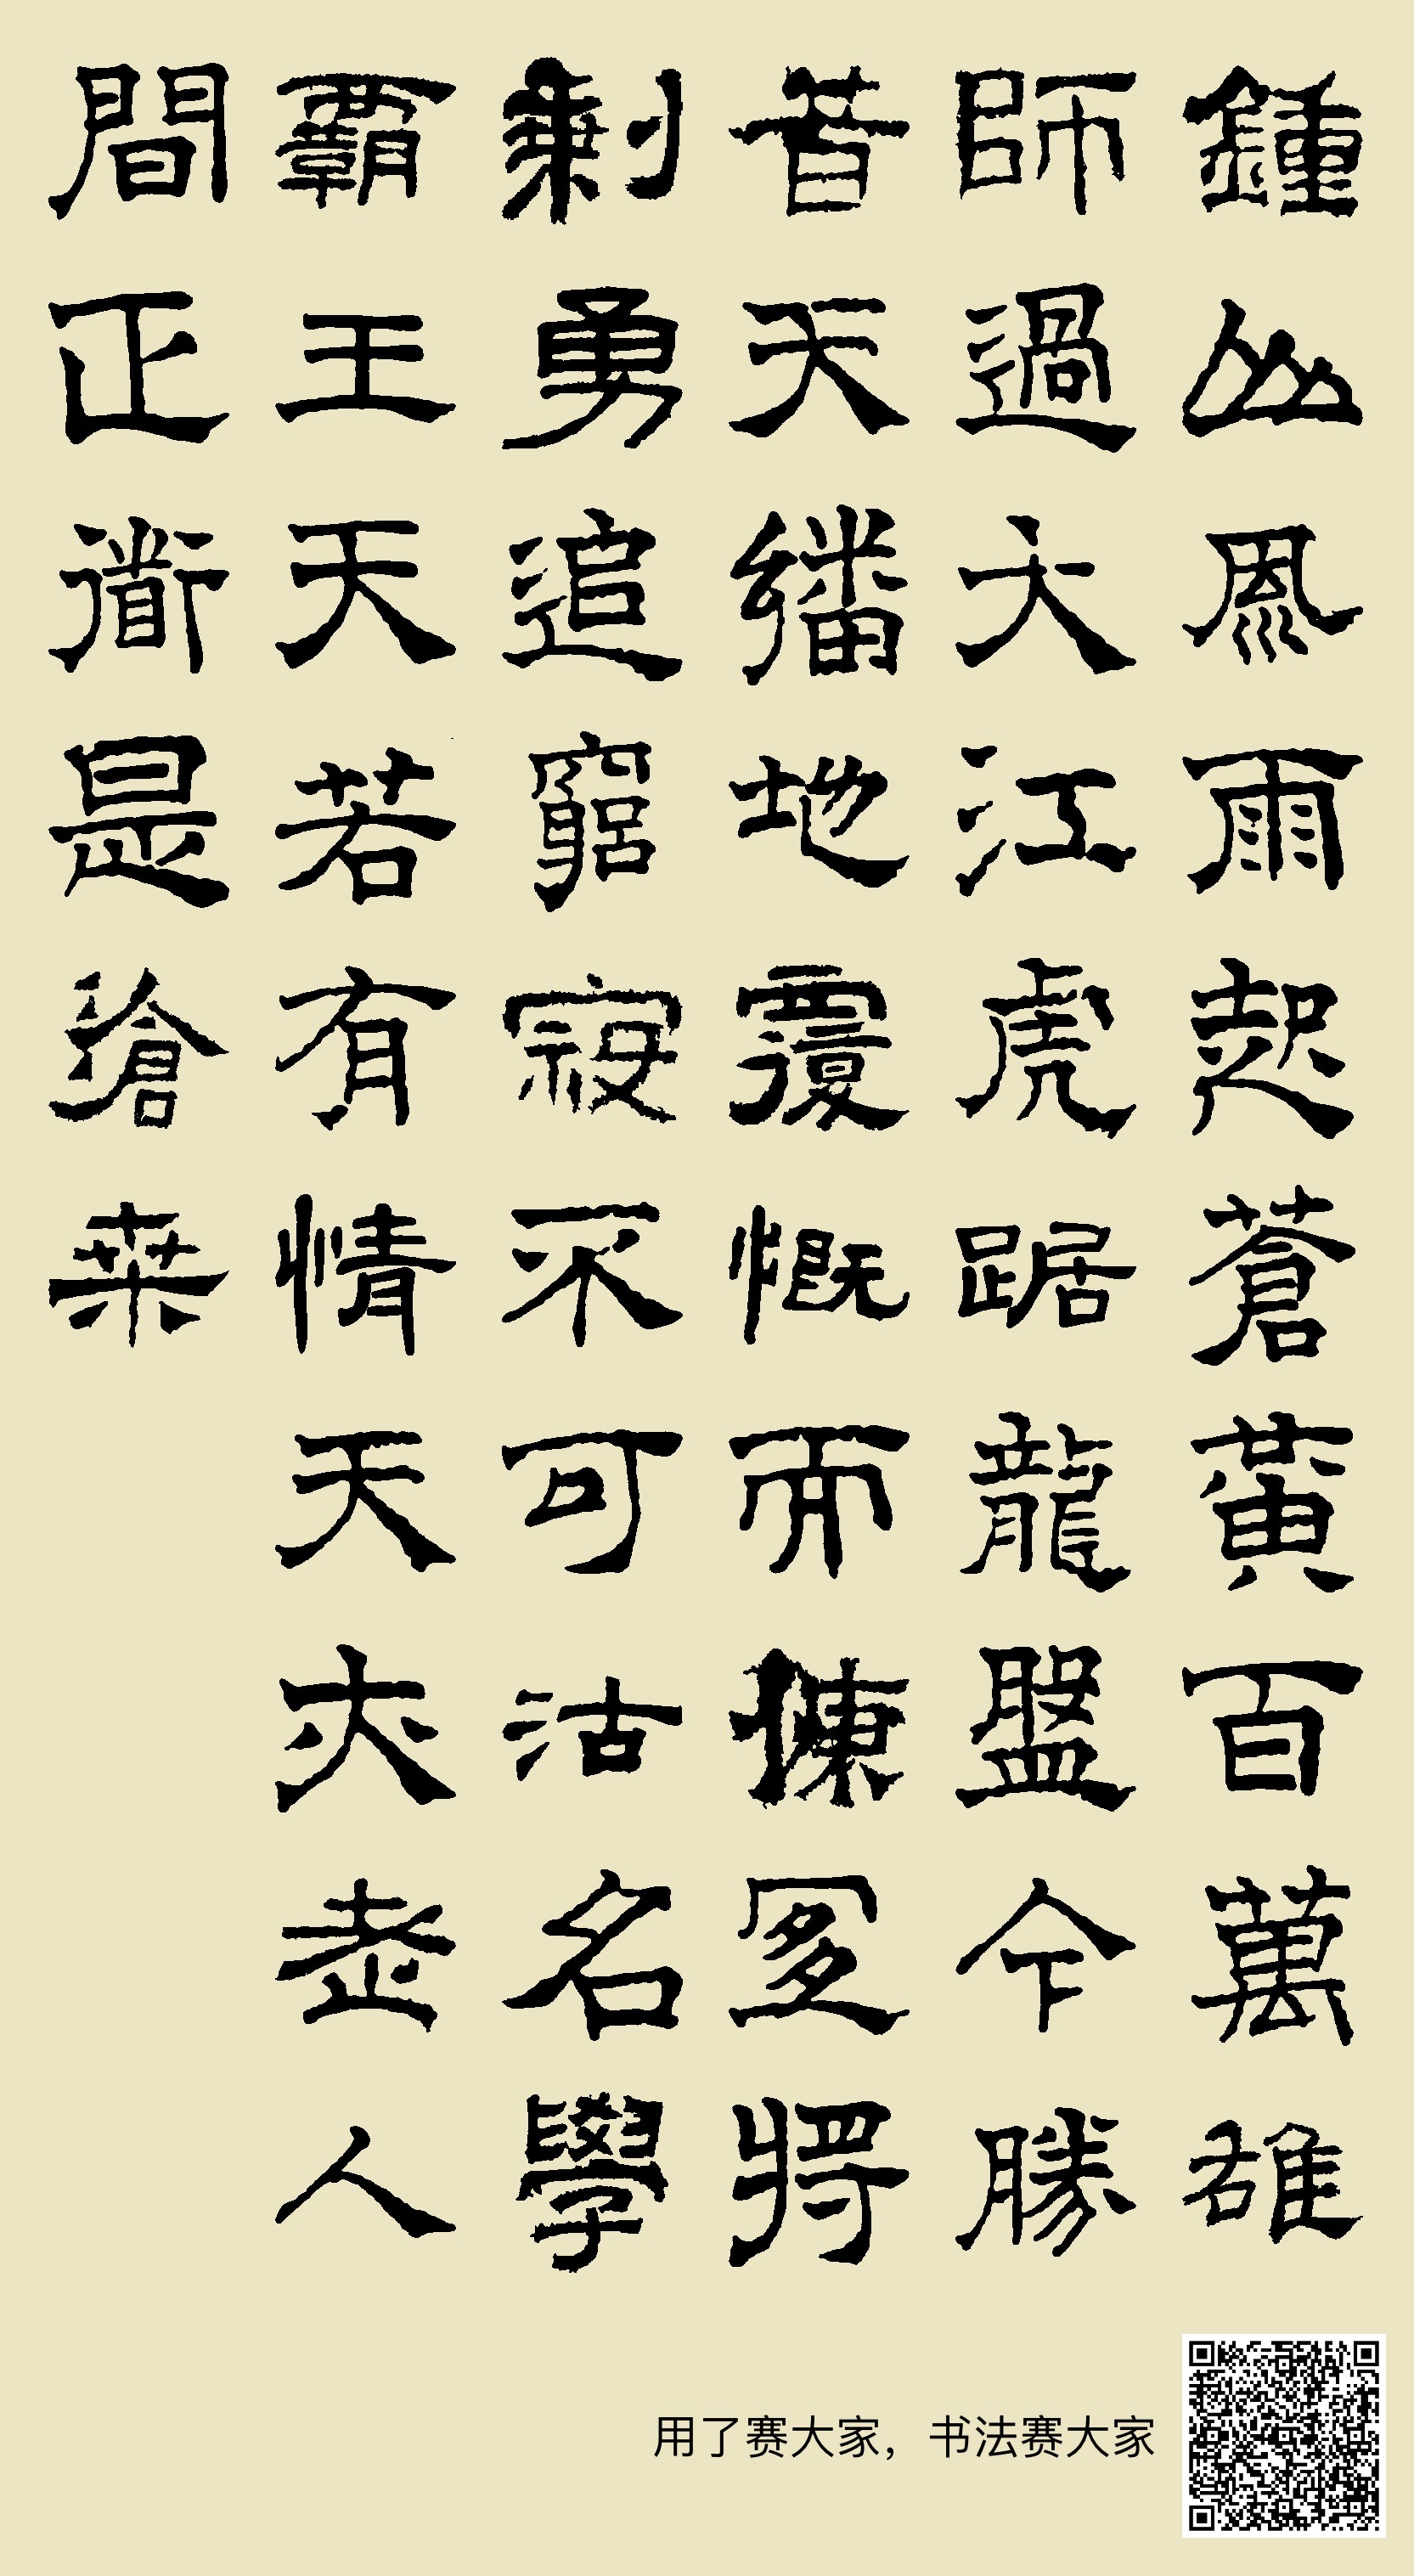 鍾山風雨起蒼黃百萬雄
師過大江虎踞龍盤今勝
昔天繙地覆慨而慷宜將
剩勇追窮寇不可沽名學
霸王天若有情天亦老人
間正道是滄桑
用了赛大家，书法赛大家